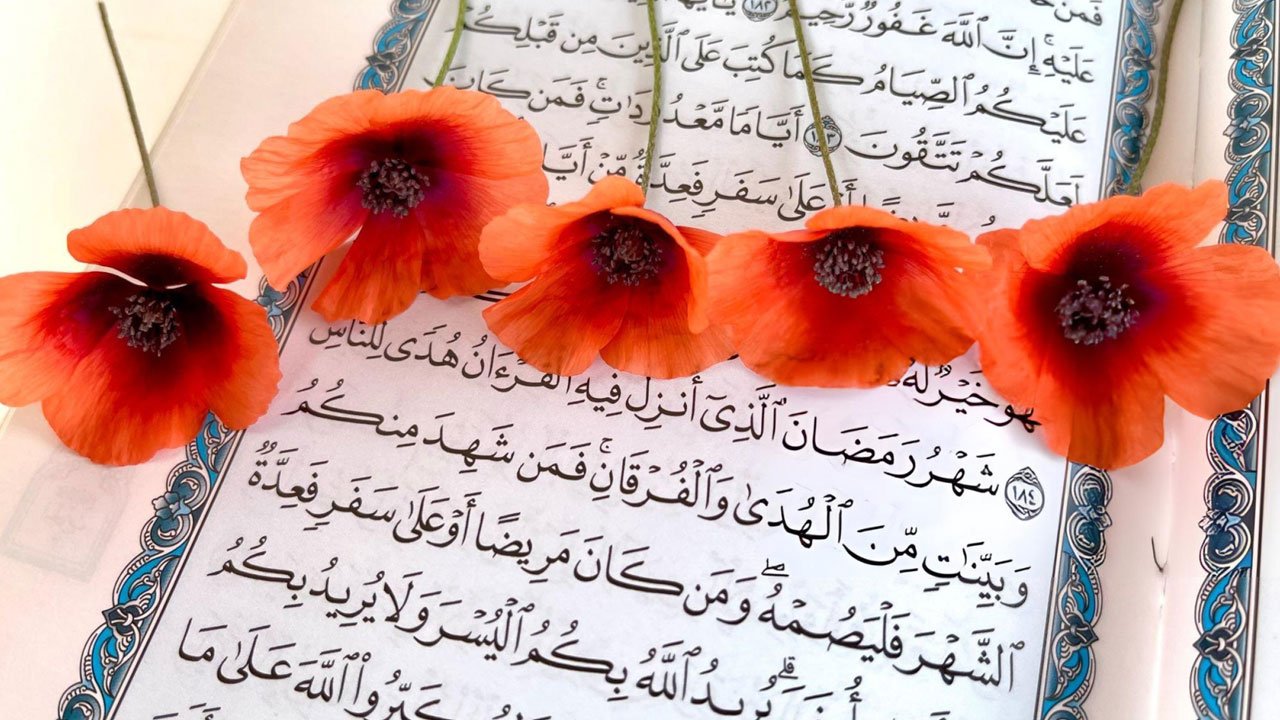 فَمَنْ خَ
عَلَيْهِ ۚ إِنَّ ٱللَّهَ غَفُورٌ رَّحِيمٌ ١٨٢ يَٰٓأَيُّهَا
عَلَيْكُمُ ٱلصِّيَامُ كَمَا كُتِبَ عَلَى ٱلَّذِينَ مِن قَبْلِكُمْ
لَعَلَّكُمْ تَتَّقُونَ ١٨٣ أَيَّامًا مَّعْدُودَٰتٍ ۚ فَمَن كَانَ
عَلَىٰ سَفَرٍ فَعِدَّةٌ مِّنْ أَيَّا
فَهُوَ خَيْرٌ لَّهُۥ
١٨٤ شَهْرُ رَمَضَانَ ٱلَّذِىٓ أُنزِلَ فِيهِ ٱلْقُرْءَانُ هُدًى لِّلنَّاسِ
وَبَيِّنَٰتٍ مِّنَ ٱلْهُدَىٰ وَٱلْفُرْقَانِ ۚ فَمَن شَهِدَ مِنكُمُ
ٱلشَّهْرَ فَلْيَصُمْهُ ۖ وَمَن كَانَ مَرِيضًا أَوْ عَلَىٰ سَفَرٍ فَعِدَّةٌ
أُخَرَ ۗ يُرِيدُ ٱللَّهُ بِكُمُ ٱلْيُسْرَ وَلَا يُرِيدُ بِكُمُ
ٱللَّهَ عَلَىٰ مَا